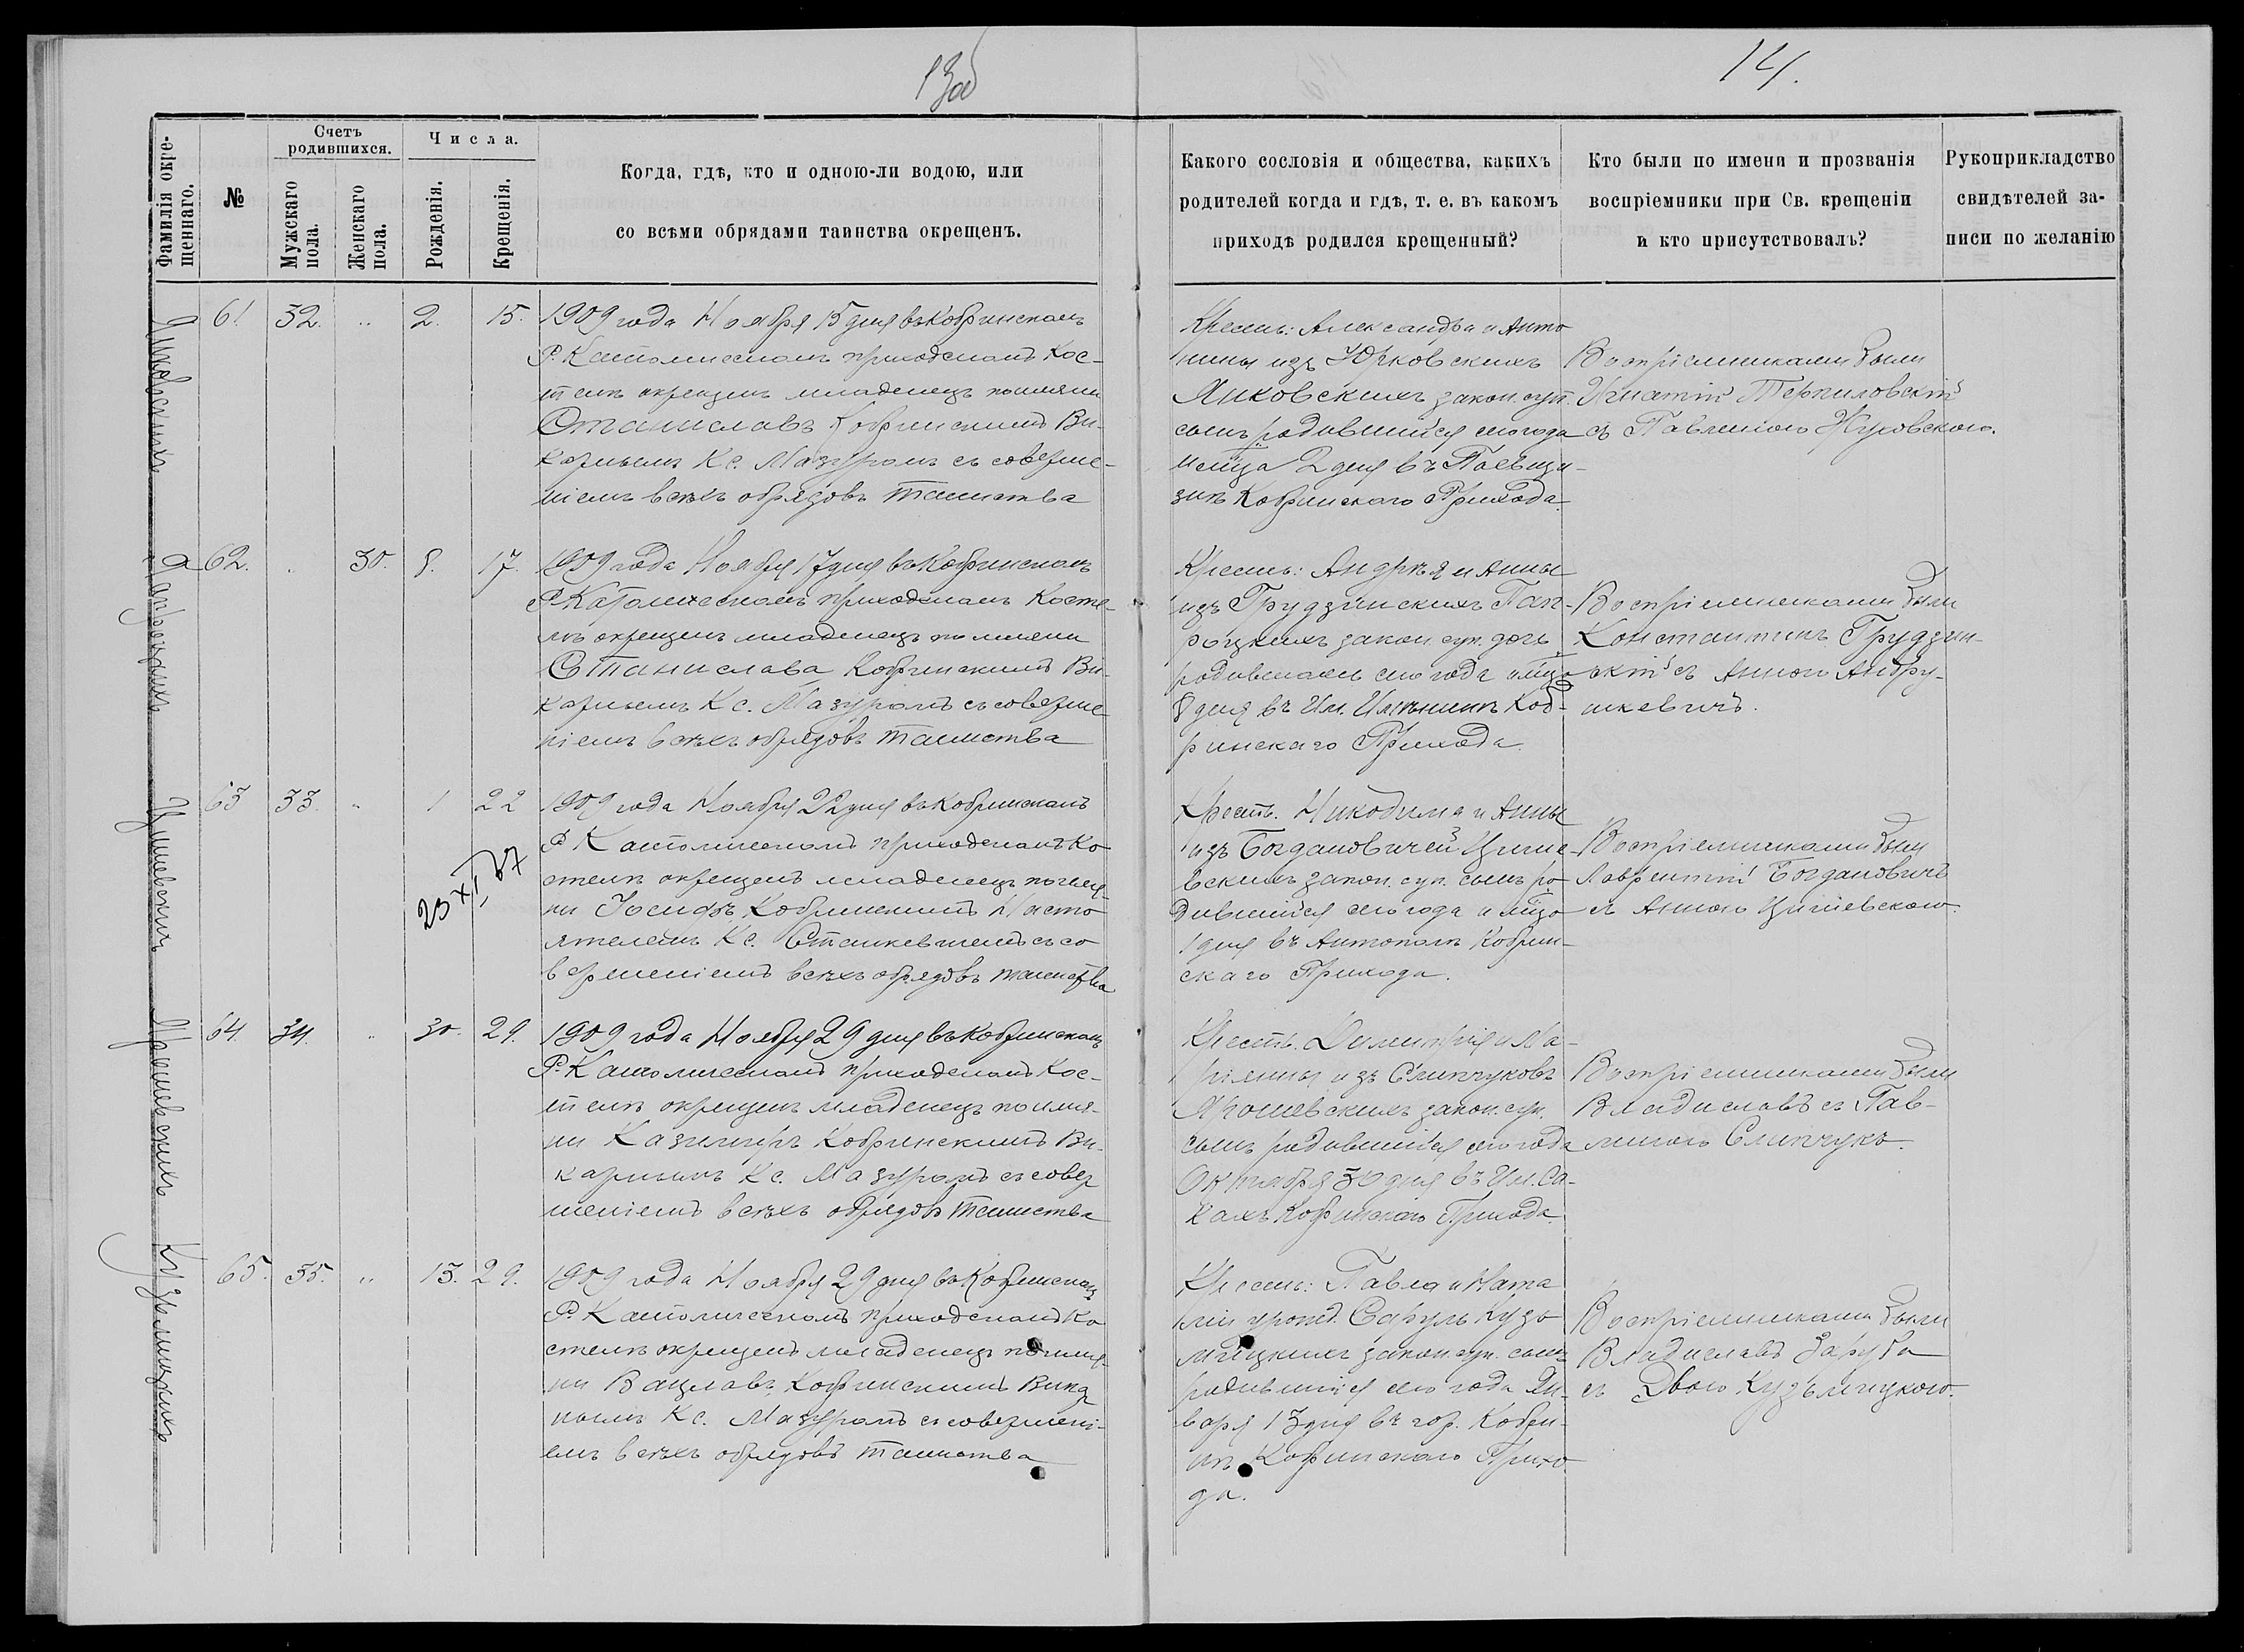 13об
14.
Фамилія окре-
щеннаго.
№
Счетъ
родившихся.
Мужскаго
пола.
Женскаго
пола.
Числа.
Рожденія.
Крещенія.
Когда, гдѣ, кто и одною-ли водою, или
со всѣми обрядами таинства окрещенъ.
Какого сословія и общества, какихъ
родителей когда и гдѣ, т. е. въ какомъ
приходѣ родился крещенный?
Кто были по имени и прозванія
воспріемники при Св. крещеніи
и кто присутствовалъ?
Рукоприкладство
свидѣтелей за-
писи по желанію
Янковскихъ
61 32. " 2. 15.
1909 года Ноября 15 дня въ Кобринскомъ
Р. Католическомъ приходскомъ Кос-
телѣ окрещенъ младенецъ по имяни
Станиславъ Кобринскимъ Ви-
карьемъ Кс. Мазуромъ съ соверше-
ніемъ всѣхъ обрядовъ таинства
Крест: Александра и Анто
нины изъ Юрковскихъ
Янковскихъ закон. суп.
сынъ родившійся сего года
мсца 2 дня въ
Кобринскаго Прихода.
Воспріемниками были
Игнатій Терпиловскій
съ Павлиною Жуковскою.
62. . 30. 8. 17.
1909 года Ноября 17 дня въ Кобринскомъ
Р. Католическомъ приходскомъ Косте-
лѣ окрещенъ младенецъ по имяни
Станислава Кобринскимъ Ви-
карьемъ Кс. Мазуромъ съ соверше
ніемъ всѣхъ обрядовъ таинства
Крест: Андрѣя и Анны
изъ Грудзинскихъ Пап-
роцкихъ закон. суп. дочь
родившаяся сего года и мца
8 дня въ Им. Коб-
ринскаго Прихода.
Воспріемниками были
Константинъ Грудзин-
скій съ Анною Андру-
шкевичъ.
Цишевскихъ
63 33. " 1 22
23 XI 27
1909 года Ноября 22 дня въ Кобринскомъ
Р. Католическомъ приходскомъ Ко
стелѣ окрещенъ младенецъ по имя
ни Іосифъ Кобринскимъ Насто
ятелемъ Кс. Станкевичемъ съ со
вершеніемъ всѣхъ обрядовъ таинства
Крест. Никодима и Анны
изъ Богдановичей Цише-
вскихъ закон. суп. сынъ ро
дившійся сего года и мца
1 дня въ Антополѣ Кобрин-
скаго Прихода.
Воспріемниками были
Лаврентій Богдановичъ
съ Анною Цишевскою.
Ярошевскихъ
64. 34. " 30. 29.
1909 года Ноября 29 дня въ Кобринскомъ
Р. Католическомъ приходскомъ Кос-
телѣ окрещенъ младенецъ по имя-
ни Казимиръ Кобринскимъ Ви-
карьемъ Кс. Мазуромъ съ совер
шеніемъ всѣхъ обрядовъ таинства
Крест. Димитрія и Ма-
ріянны изъ Слипчуковъ
Ярошевскихъ закон. суп.
сынъ родившійся сего года
Октября 30 дня въ Им. Са-
кахъ Кобринскаго Прихода.
Воспріемниками были
Владиславъ съ Пав-
линою Слипчукъ.
Кузьмицкихъ
65. 35. " 13. 29.
1909 года Ноября 29 дня въ Кобринскомъ
Р. Католическомъ приходскомъ Ко
стелѣ окрещенъ младенецъ по имя-
ни Вацлавъ Кобринскимъ Вика
ріемъ Кс. Мазуромъ съ совершені-
емъ всѣхъ обрядовъ таинства
Крест: Павла и Ната
ліи урожд. Кузь
мицкихъ закон. суп. сынъ
родившійся сего года Ян-
варя 13 дня въ гор. Кобри-
нѣ Кобринскаго Прихо
да.
Воспріемниками были
Владиславъ Заруба
съ Кузьмицкою.